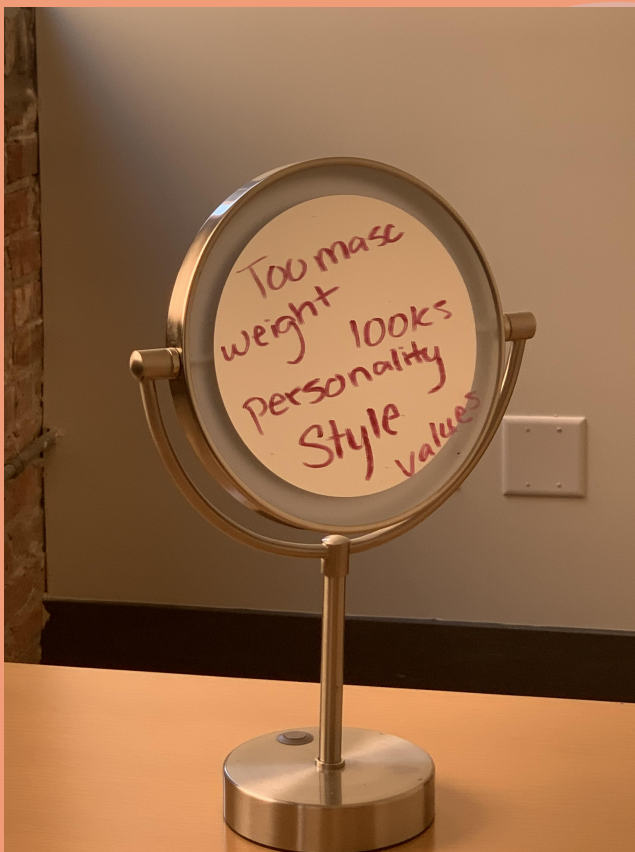 Too masc
weight
looks
personality
Style
values